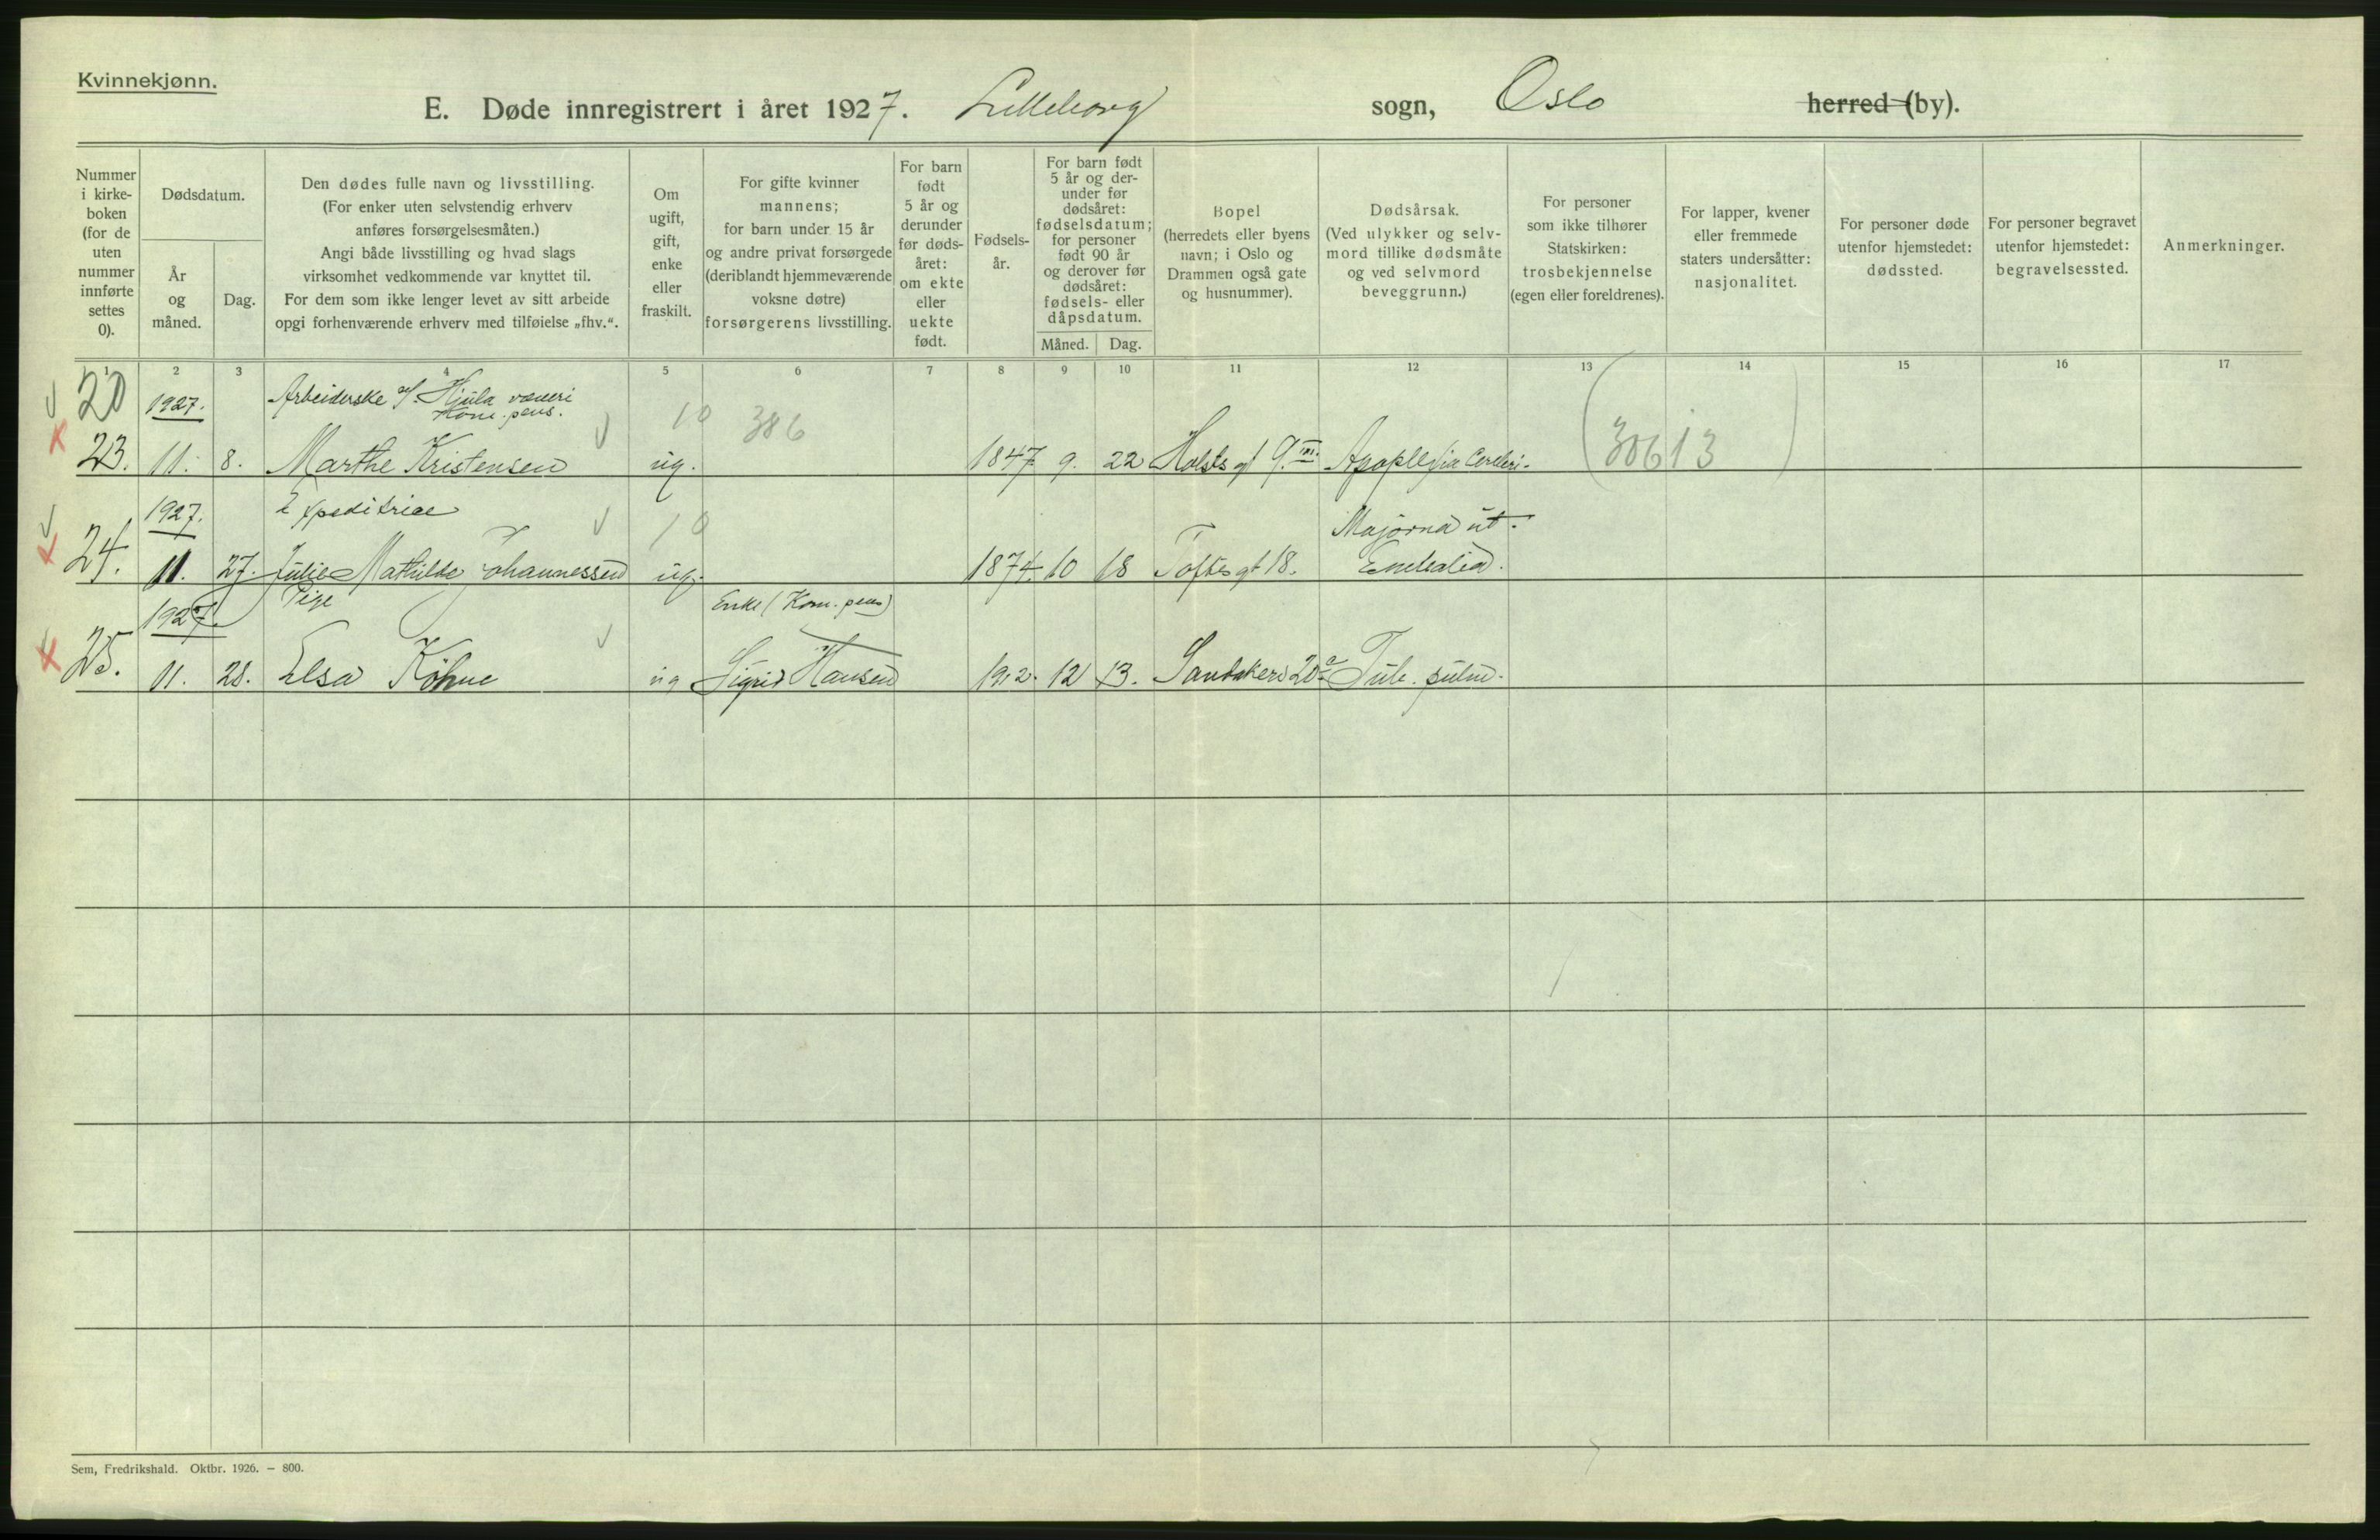 Kvinnekjønn.
E. Døde innregistrert i året 1927. Lilleborg sogn, Oslo herred (by).
Nummer i kirke-boken (for de uten nummer innførte settes 0).
Dødsdatum.
År og måned.
Dag.
Den dødes fulle navn og livsstilling.
(For enker uten selvstendig erhverv
anføres forsørgelsesmåten.)
Angi både livsstilling og hvad slags
virksomhet vedkommende var knyttet til.
For dem som ikke lenger levet av sitt arbeide
opgi forhenværende erhverv med tilføielse „fhv.“.
Om ugift, gift, enke eller fraskilt.
For gifte kvinner
mannens;
for barn under 15 år
og andre privat forsørgede
(deriblandt hjemmeværende
voksne døtre)
forsørgerens livsstilling.
For barn født 5 år og derunder før døds-året: om ekte eller uekte født.
Fødsels-år.
For barn født
5 år og der-
under før
dødsåret:
fødselsdatum;
for personer
født 90 år
og derover før
dødsåret:
fødsels- eller
dåpsdatum.
Måned. Dag.
Bopel
(herredets eller byens
navn; i Oslo og
Drammen også gate
og husnummer).
Dødsårsak.
(Ved ulykker og selv-
mord tillike dødsmåte
og ved selvmord
beveggrunn.)
For personer
som ikke tilhører
Statskirken:
trosbekjennelse
(egen eller foreldrenes).
For lapper, kvener
eller fremmede
staters undersåtter:
nasjonalitet.
For personer døde
utenfor hjemstedet:
dødssted.
For personer begravet
utenfor hjemstedet:
begravelsessted.
Anmerkninger.
1 2 3 4 5 6 7 8 9 10 11 12 13 14 15 16 17
20 1927. Arbeiderske v/ Hjula væveri
Kom. pens. 10 386
23. 11. 8. Marthe Kristensen ug. 1847. 9. 22 Holsts gt 9. III. Apoplexia Cerebri. (30613)
1927. Expeditrice 10 Majorna ut.
24. 11. 27. Julie Mathilde Johannessen ug. 1874. 10 18 Toftesgt 18.
1927. Pige Enke (Kom. pens)
25. 11. 28. Elsa Köhne ug Sigrid Hansen 1912. 12 13. Sandakerv 20 a Tub. pulm.
Sem, Fredrikshald. Oktbr. 1926. — 800.